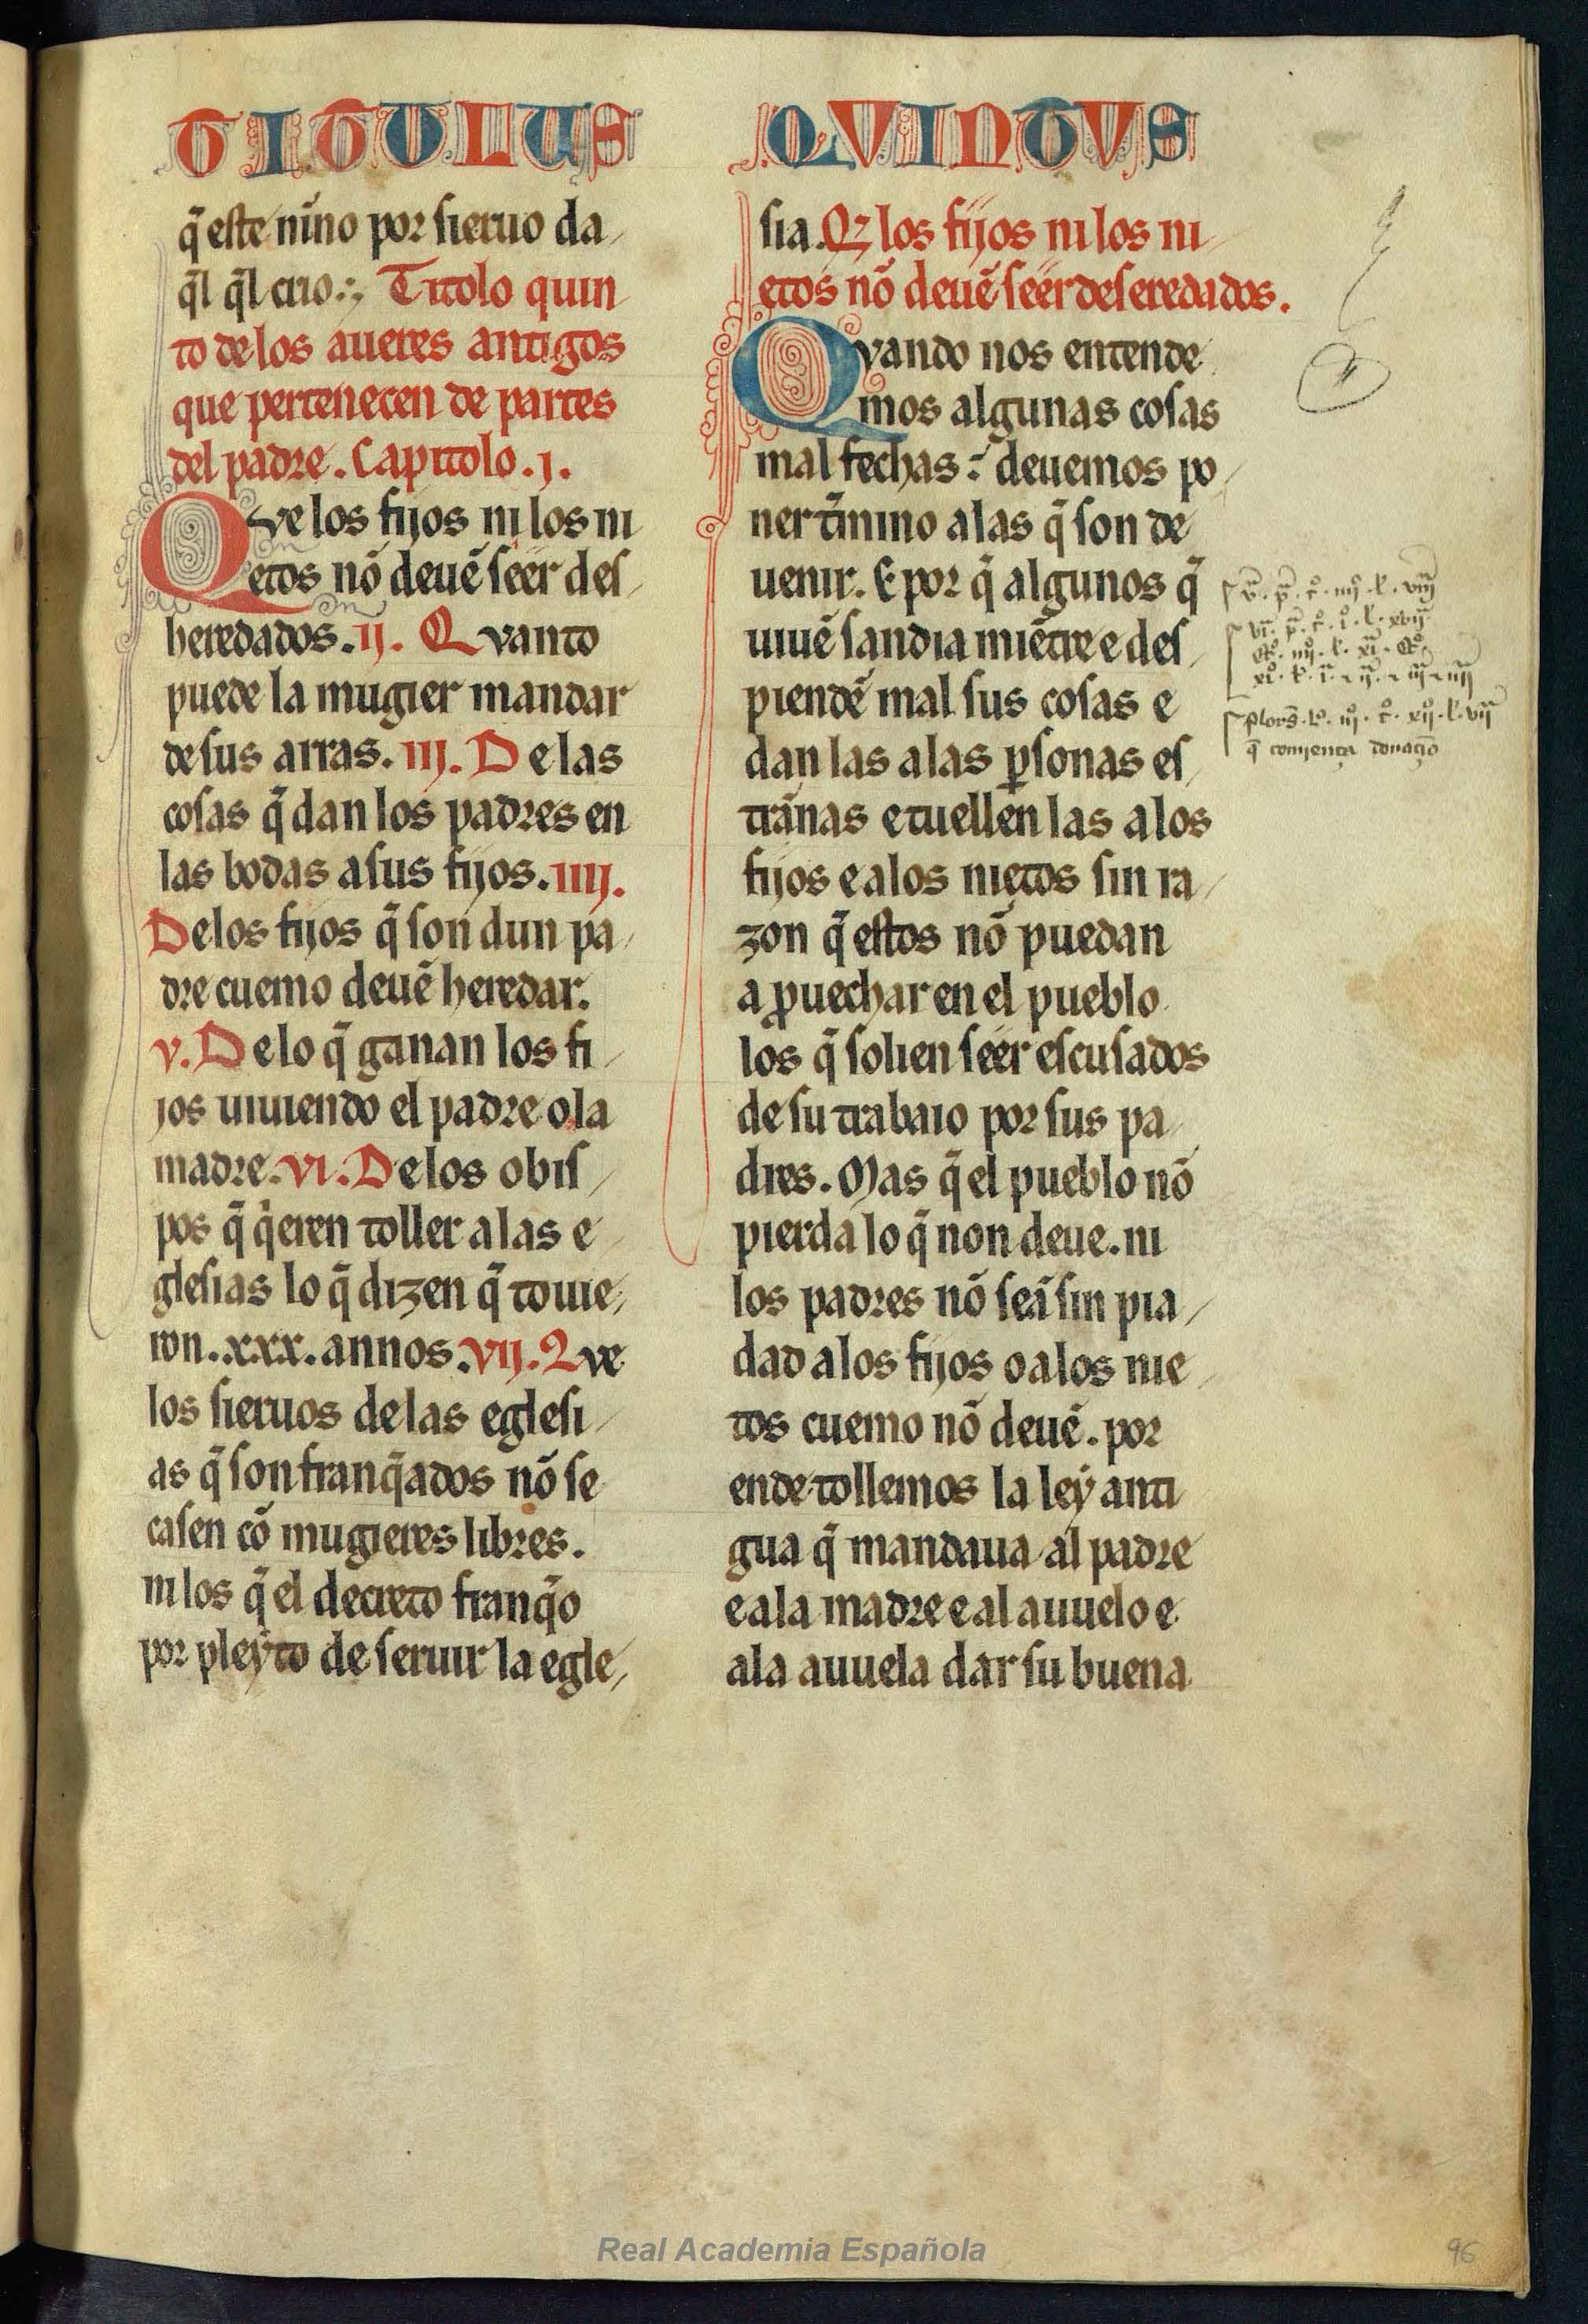 TITULUS
q̃ este nĩno por sieruo da
q̃l q̃l crio. Titolo quin
to de los aueres antigos
que pertenecen de partes
del padre. Capitolo .j.
Que los fijos ni los ni
etos nõ deuẽ seer des
heredados. ij. Quanto
puede la mugier mandar
de sus arras. iij. De las
cosas q̃ dan los padres en
las bodas a sus fijos. iiij.
De los fijos q̃ son dun pa
dre cuemo deuẽ heredar.
v. De lo q̃ ganan los fi
jos uiuiendo el padre o la
madre. vi. De los obis
pos q̃ q̃eren toller a las e
glesias lo q̃ dizen q̃ touie
ron .xxx. annos. vij. Que
los sieruos de las eglesi
as q̃ son franq̃ados nõ se
casen cõ mugieres libres.
ni los q̃ el decreto franq̃o
por pleyto de seruir la egle
QVINTVS
sia. Q̃ los fijos ni los ni
etos nõ deuẽ seer deseredados.
Qvando nos entende
mos algunas cosas
mal fechas: deuemos po
ner t̃mino a las q̃ son de
uenir. E por q̃ algunos q̃
uiuẽ sandia miẽtre e des
piendẽ mal sus cosas e
dan las a las ꝑsonas es
trãnas e tuellen las a los
fijos e a los nietos sin ra
zon q̃ estos nõ puedan
a ꝓuechar en el pueblo
los q̃ solien seer escusados
de su trabaio por sus pa
dres. Mas q̃ el pueblo nõ
pierda lo q̃ non deue. ni
los padres nõ seã sin pia
dad a los fijos o a los nie
tos cuemo nõ deuẽ. por
ende tollemos la ley anti
gua q̃ mandaua al padre
e a la madre e al auuelo e
a la auuela dar su buena
q̃ comiença donaçiõ
Real Academia Española
96